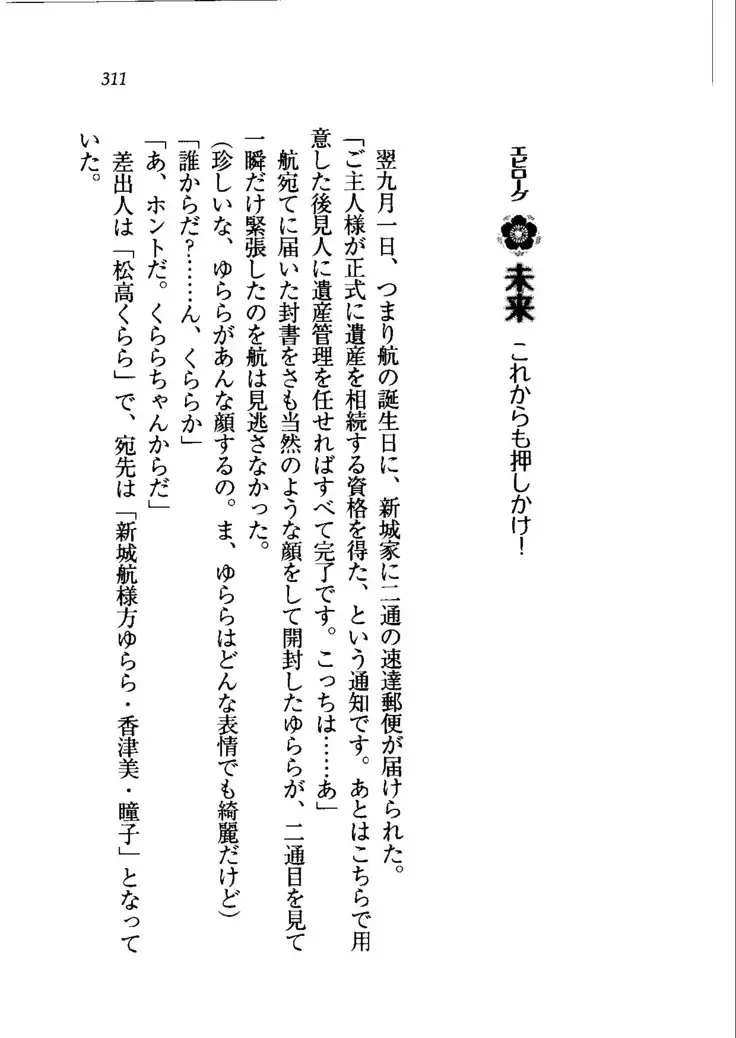 311
エピローグ 未来 これからも押しかけ！
翌九月一日、つまり航の誕生日に、新城家に二通の速達郵便が届けられた。
「ご主人様が正式に遺産を相続する資格を得た、という通知です。あとはこちらで用
意した後見人に遺産管理を任せればすべて完了です。こっちは……あ」
航宛てに届いた封書をさも当然のような顔をして開封したゆららが、二通目を見て
一瞬だけ緊張したのを航は見逃さなかった。
（珍しいな、ゆららがあんな顔するの。ま、ゆららはどんな表情でも綺麗だけど）
「誰からだ？……ん、くららか」
「あ、ホントだ。くららちゃんからだ」
差出人は「松高くらら」で、宛先は「新城航様方ゆらら・香津美・瞳子」となって
いた。